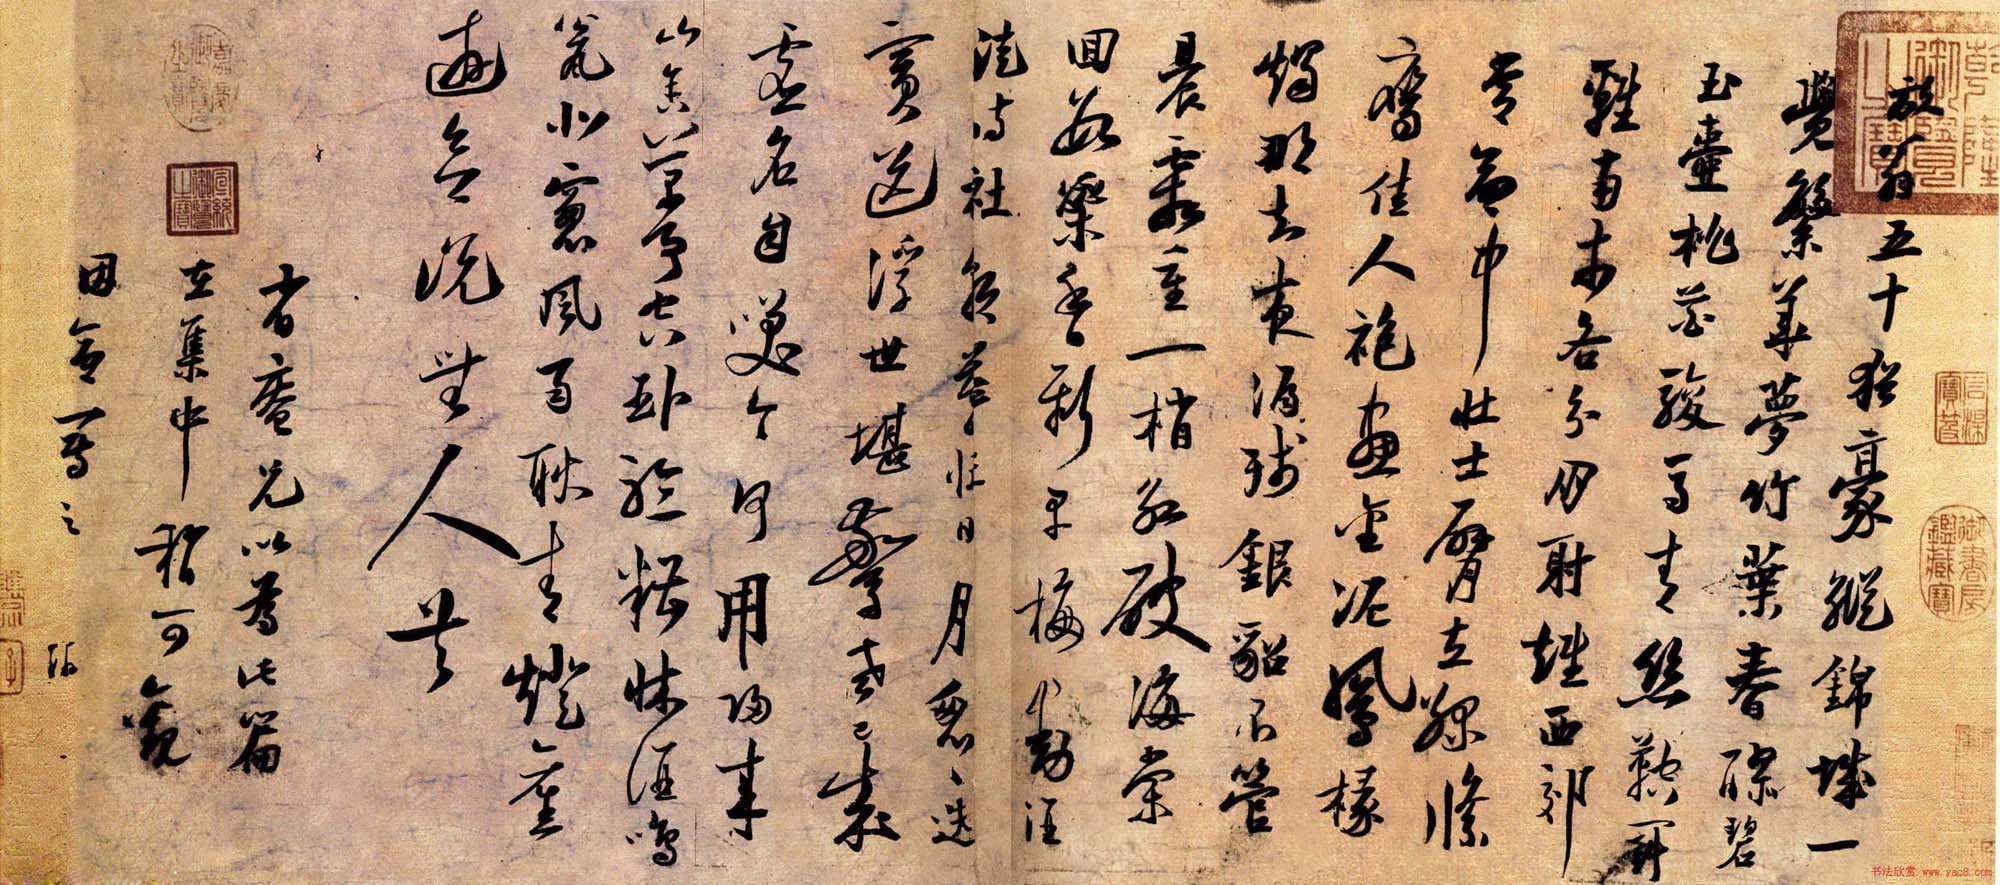 放翁五十猶豪縱錦城一
覺繁華夢竹葉春醪碧
玉壺桃花駿馬青絲鞚鬥
雞南市各分朋射雉西郊
常命中壯士臂立綠絛
鷹佳人袍畫金泥鳳椽
燭那知夜漏殘銀貂不管
晨霜重一梢紅破海棠
回數蘂香新早梅動酒
徒詩社朝暮忙日月匆匆迭
賓送浮世堪驚老已成
虛名自笑今何用歸來
山舍萬事空臥聽糟牀酒鳴
甕北窗風雨耿青燈舊
遊欲說無人共
省庵兄以為此篇
在集中稍可觀
因命寫之
游
乾隆御覽之寶
御書房鑑藏寶
嘉慶御覽之寶
宣統御覽之寶
书法欣赏 www.yac8.com